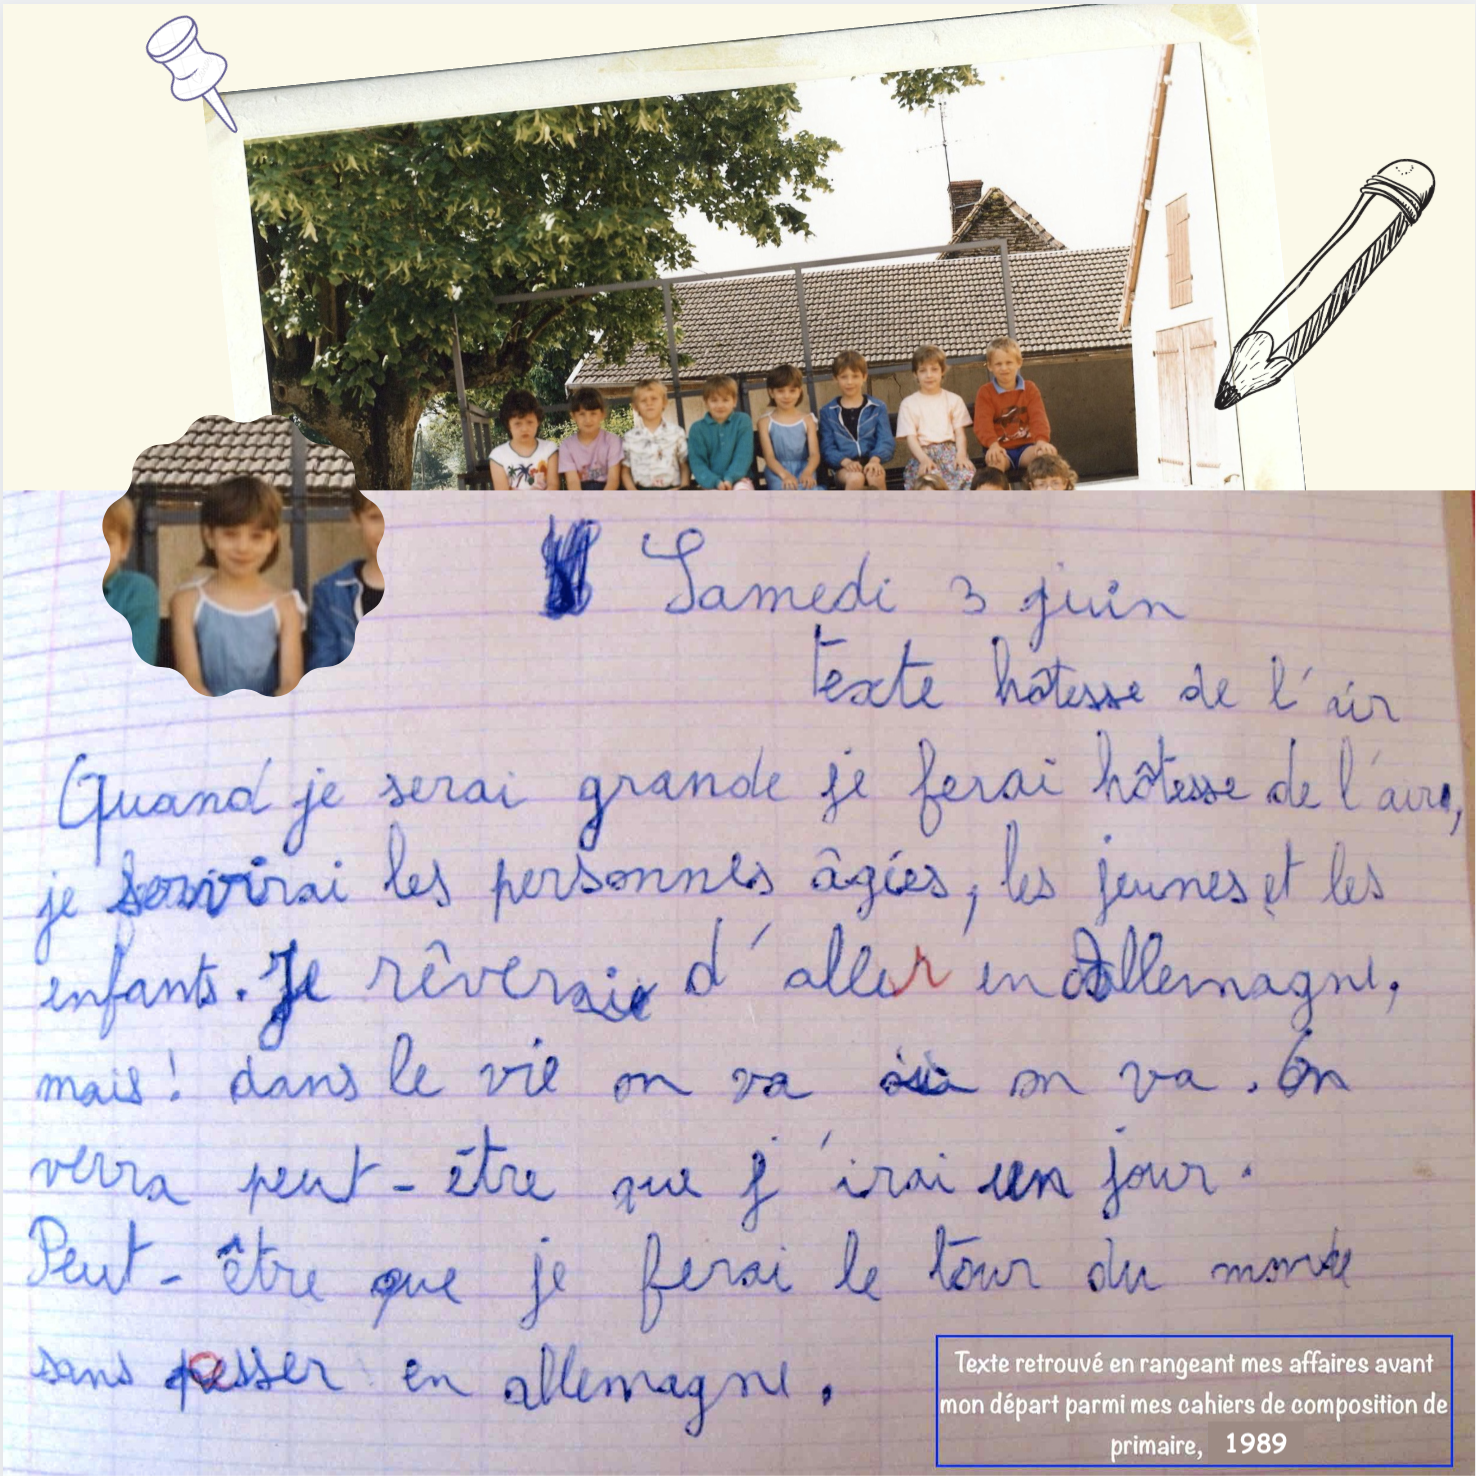 Samedi 3 juin
texte hôtesse de l'air
Quand je serai grande je ferai hôtesse de l'air,
je servirai les personnes âgées, les jeunes et les
enfants. Je rêverais d'aller en Allemagne,
mais! dans le vie on va où on va. On
verra peut-être que j'irai un jour.
Peut-être que je ferai le tour du monde
sans passer en allemagne.
Texte retrouvé en rangeant mes affaires avant
mon départ parmi mes cahiers de composition de
primaire, 1989